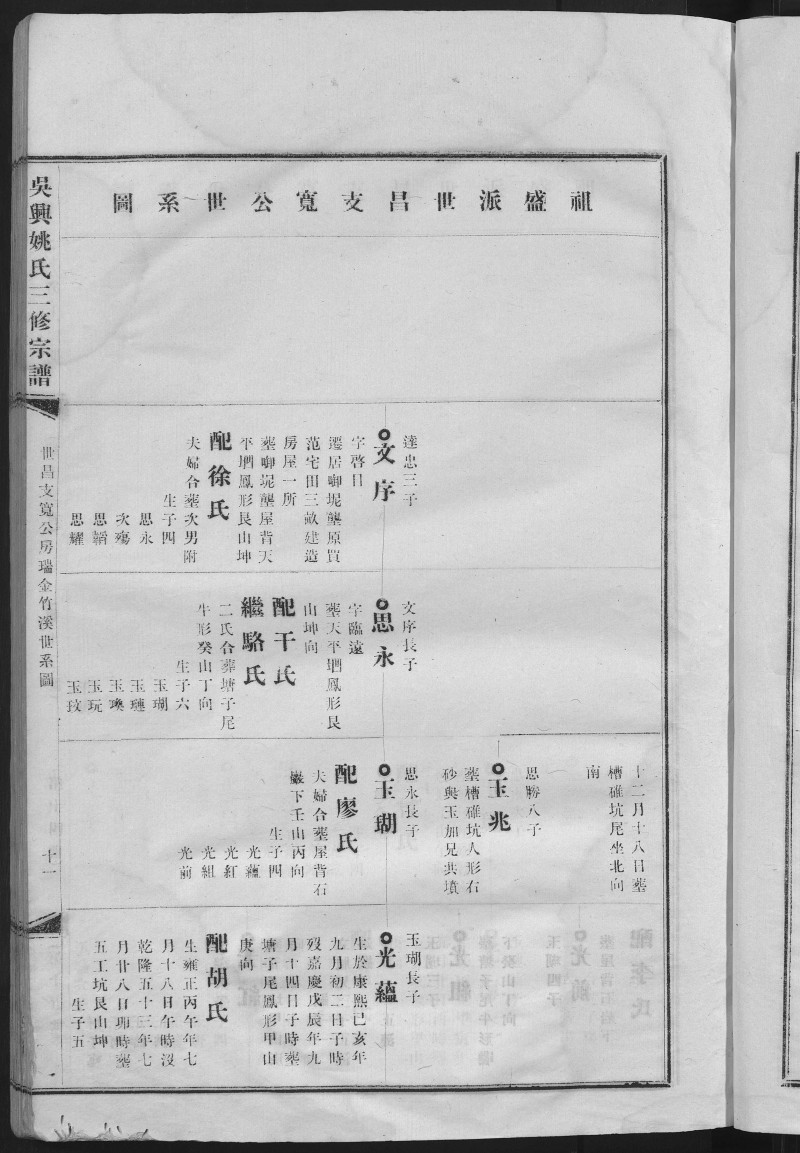 祖盛派世昌支寬公世系圖
達忠三子
文序
字啓日
遷居啣坭壟原買
范宅田三畝建造
房屋一所
塟啣坭壟屋背天
平堋鳳形艮山坤
配徐氏
夫婦合塟次男附
生子四
思永
次殤
思韜
思耀
文序長子
思永
字臨遠
塟天平堋鳳形艮
山坤向
配干氏
繼駱氏
二氏合葬塘子尾
牛形癸山丁向
生子六
玉瑚
玉璉
玉瑍
玉玩
玉玫
十二月十八日塟
槽碓坑尾坐北向
南
思勝八子
玉兆
塟槽碓坑人形右
砂與玉加兄共墳
思永長子
玉瑚
配廖氏
夫婦合塟屋背石
巖下壬山丙向
生子四
光蘊
光紅
光組
光前
玉瑚長子
光蘊
生於康熙己亥年
九月初二日子時
歿嘉慶戊辰年九
月十四日子時塟
塘子尾鳳形甲山
庚向
配胡氏
生雍正丙午年七
月十八日午時沒
乾隆五十三年七
月廿八日卯時塟
五工坑艮山坤
生子五
吳興姚氏三修宗譜
世昌支寬公房瑞金竹溪世系圖
十一